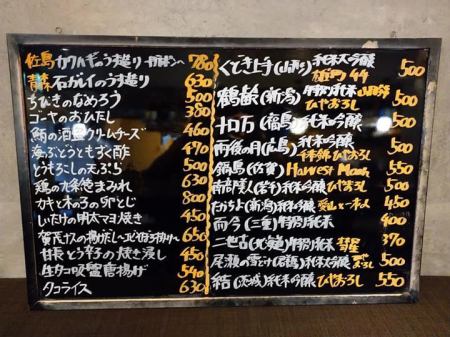 佐島 カワハギのうす造り 〜肝ポン〜 780
青森 石ガレイのうす造り 630
ちびきのなめろう 500
ゴーヤのおひたし 380
鮪の酒盗クリームチーズ 460
海ぶどうともずく酢 470
とうもろこしの天ぷら 500
鶏の九条葱まみれ 630
カキと木の子の卵とじ 800
しいたけの明太マヨ焼き 450
賀茂ナスの揚げだし 650
甘長とう辛子の焼き浸し 450
生タコ唐揚げ 540
タコライス 630
くどき上手(山形)純米大吟醸 44 500
鶴齢(新潟)特別純米 ひやおろし 500
十ロ万(福島)純米吟醸 ひやおろし 500
雨後の月(広島)純米吟醸 ひやおろし 500
鍋島(佐賀)Harvest Moon 550
南部美人(岩手)純米吟醸 ひやおろし 500
たかちよ(新潟) 450
而今(三重)特別純米 400
二世古(北海道)特別純米 彗星 370
尾瀬の雪どけ 純米大吟醸 500
結(茨城)純米吟醸 ひやおろし 550